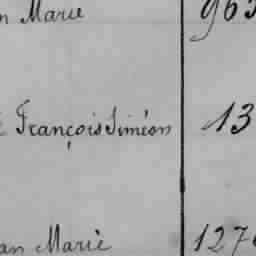 n Marie 963
François Siméon 13
an Marie 127